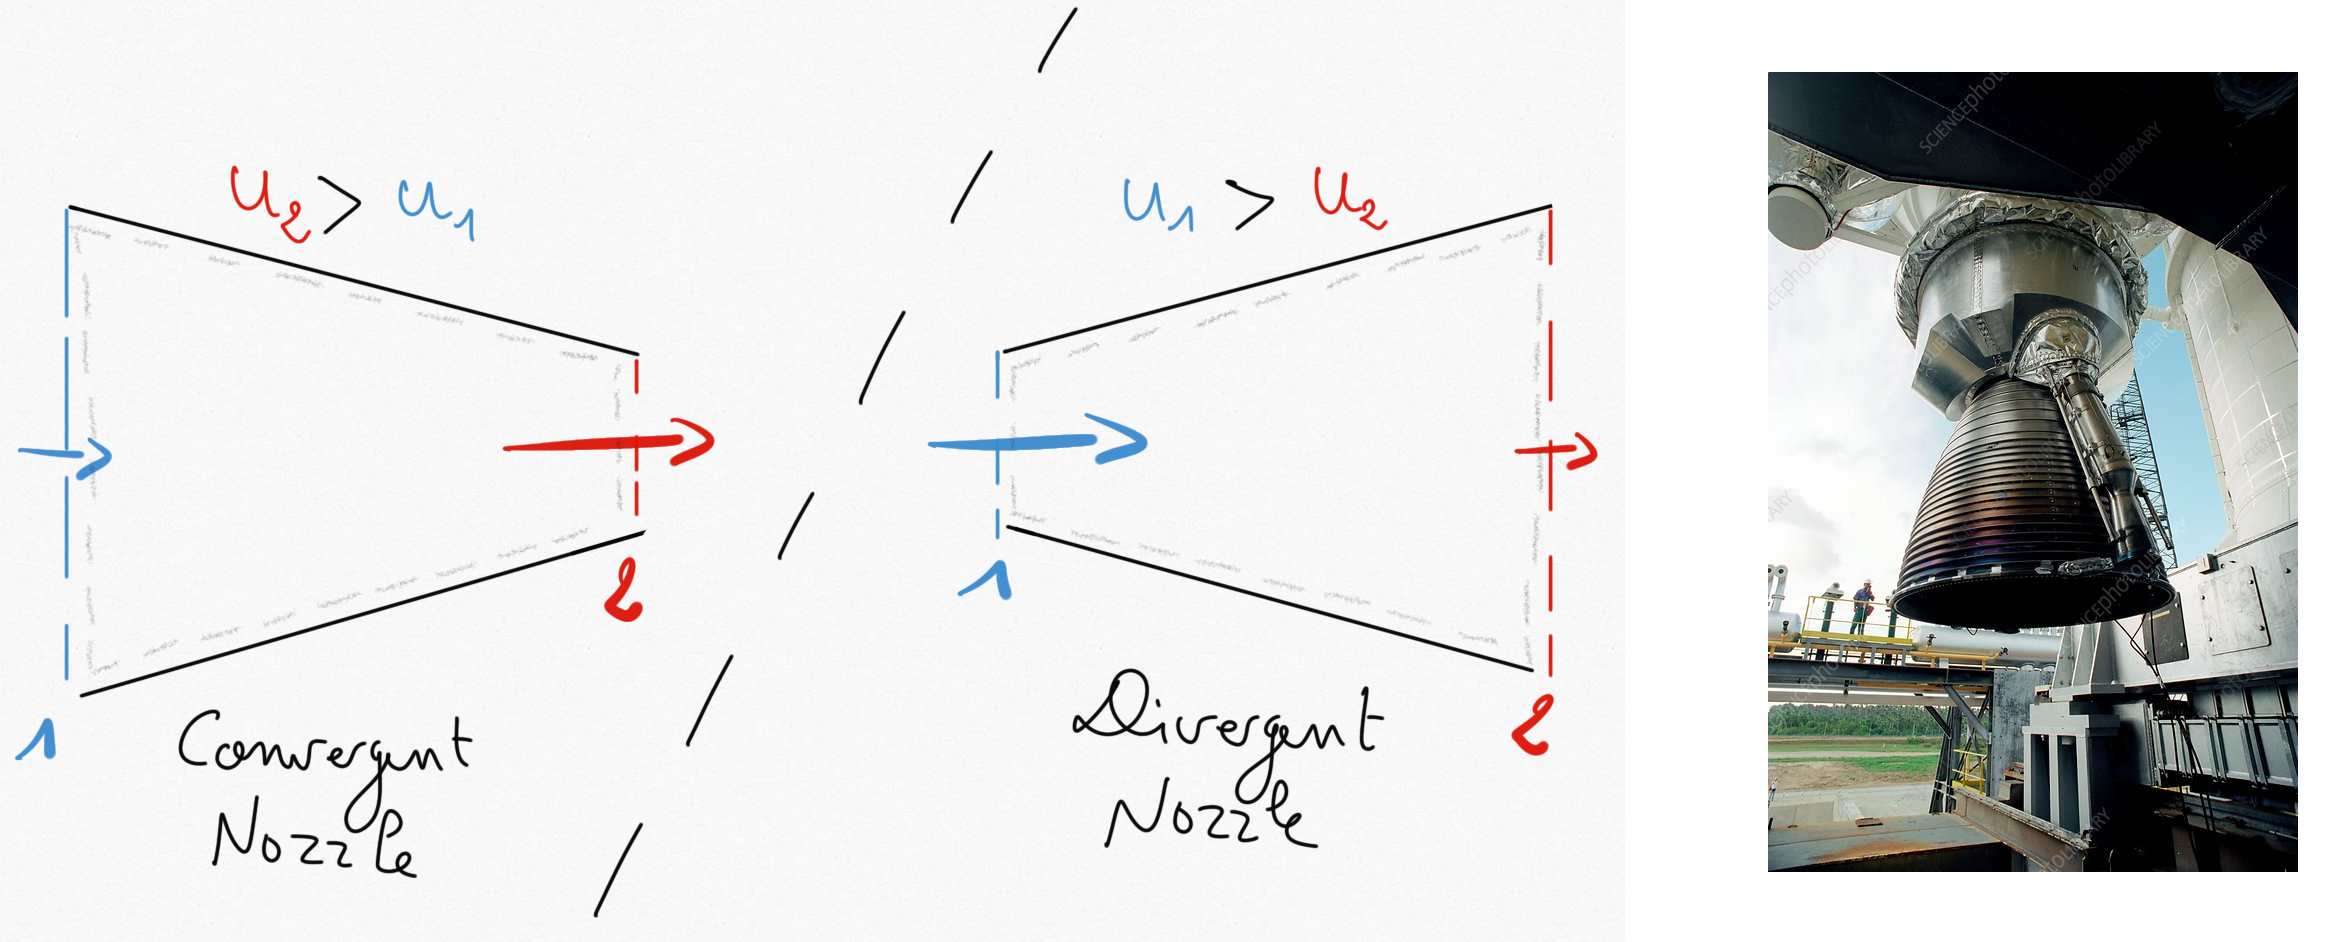 u₂ > u₁
1
2
Convergent
Nozzle
u₁ > u₂
1
2
Divergent
Nozzle
SCIENCEphotoLIBRARY